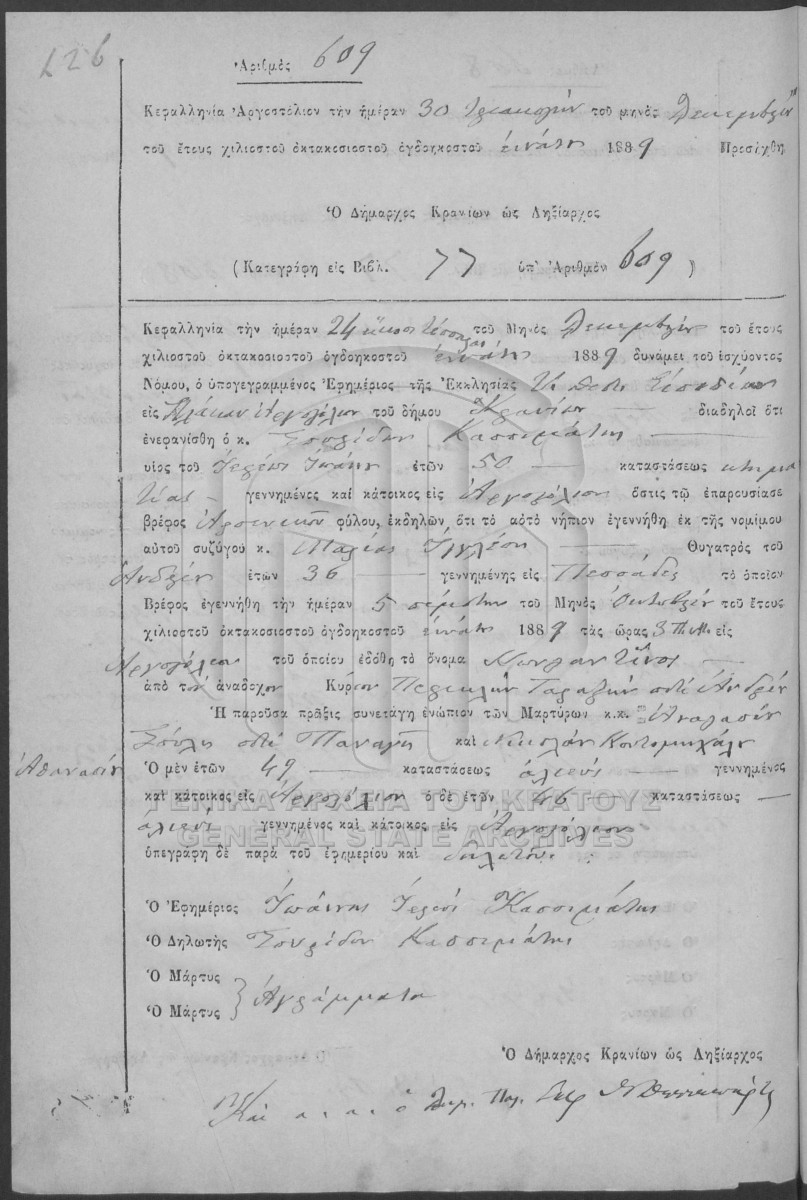 626
Ἀριθμὸς 609
Κεφαλληνία Ἀργοστόλιον τὴν ἡμέραν 30 τριακοστὴν τοῦ μηνὸς Δεκεμβρίου
τοῦ ἔτους χιλιοστοῦ ὀκτακοσιοστοῦ ὀγδοηκοστοῦ ἐννάτου 1889 Προσήχθη
Ὁ Δήμαρχος Κρανίων ὡς Ληξίαρχος
(Κατεγράφη εἰς Βιβλ. 77 ὑπ' Ἀριθμὸν 609)
Κεφαλληνία τὴν ἡμέραν 24 εἴκοσι τέσσαρας τοῦ Μηνὸς Δεκεμβρίου τοῦ ἔτους
χιλιοστοῦ ὀκτακοσιοστοῦ ὀγδοηκοστοῦ ἐννάτου 1889 δυνάμει τοῦ ἰσχύοντος
Νόμου, ὁ ὑπογεγραμμένος Ἐφημέριος τῆς Ἐκκλησίας
εἰς Ἀργοστόλιον τοῦ δήμου Κρανίων διαδηλοῖ ὅτι
ἐνεφανίσθη ὁ κ. Σπυρίδων Κασσιμάτης
υἱὸς τοῦ Ἱερέως Ἰωάννου ἐτῶν 50 καταστάσεως κτημα
τίας γεννημένος καὶ κάτοικος εἰς Ἀργοστόλιον ὅστις τῷ ἐπαρουσίασε
βρέφος Ἀρσενικοῦ φύλου, ἐκδηλῶν, ὅτι τὸ αὐτὸ νήπιον ἐγεννήθη ἐκ τῆς νομίμου
αὐτοῦ συζύγου κ. Μαρίας Ἰγγλέση Θυγατρὸς τοῦ
Ἀνδρέου ἐτῶν 36 γεννημένης εἰς Πεσσάδες τὸ ὁποῖον
Βρέφος ἐγεννήθη τὴν ἡμέραν 5 πέμπτην τοῦ Μηνὸς Ὀκτωβρίου τοῦ ἔτους
χιλιοστοῦ ὀκτακοσιοστοῦ ὀγδοηκοστοῦ ἐννάτου 1889 τὰς ὥρας 3 π.μ. εἰς
Ἀργοστόλιον τοῦ ὁποίου ἐδόθη τὸ ὄνομα Κωνσταντῖνος
ἀπὸ τὸν ἀνάδοχον Κύριον Περικλῆν ποτὲ Ἀνδρέου
Ἡ παροῦσα πρᾶξις συνετάγη ἐνώπιον τῶν Μαρτύρων κ.κ. Ἀναστασίου
ποτὲ Παναγῆ καὶ Νικολάου Κοντομιχάλου
Ἀθανασίου
Ὁ μὲν ἐτῶν 49 καταστάσεως ἁλιεὺς γεννημένος
καὶ κάτοικος εἰς Ἀργοστόλιον ὁ δὲ ἐτῶν 46 καταστάσεως
ἁλιεὺς γεννημένος καὶ κάτοικος εἰς Ἀργοστόλιον
ὑπεγράφη δὲ παρὰ τοῦ ἐφημερίου καὶ δηλωτοῦ.
ΓΕΝΙΚΑ ΑΡΧΕΙΑ ΤΟΥ ΚΡΑΤΟΥΣ
GENERAL STATE ARCHIVES
Ὁ Ἐφημέριος Ἰωάννης Ἱερεὺς Κασσιμάτης
Ὁ Δηλωτὴς Σπυρίδων Κασσιμάτης
Ὁ Μάρτυς
Ὁ Μάρτυς } Ἀγράμματοι
Ὁ Δήμαρχος Κρανίων ὡς Ληξίαρχος